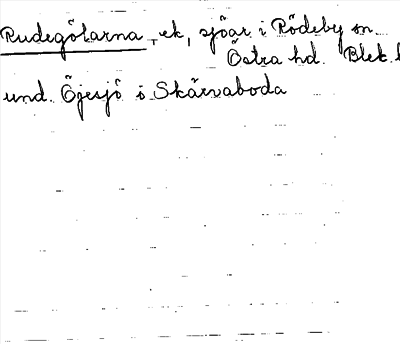 Rudegölarna -ek, sjöar i Rödeby sn
Östra hd. Blek.
und. Öjesjö i Skärvaboda